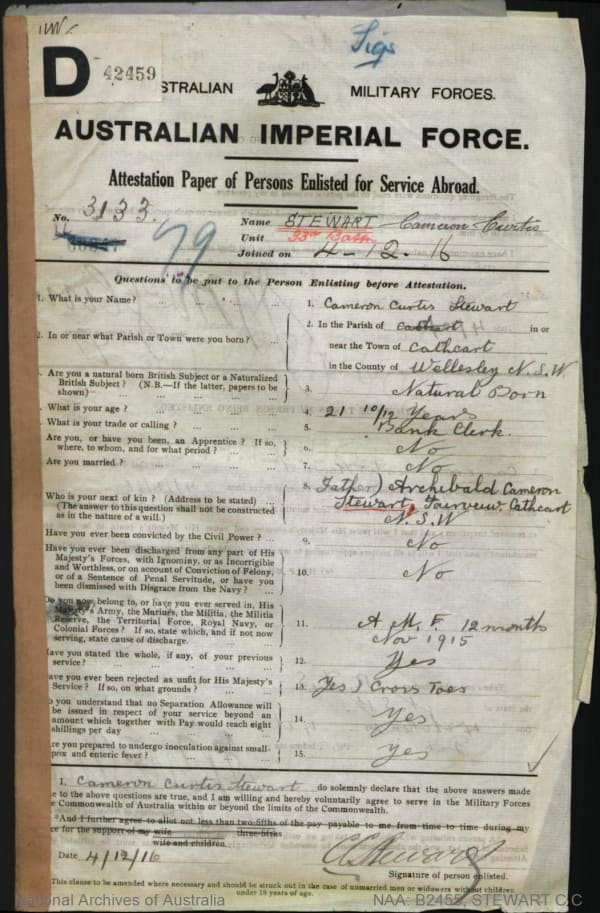 Sigs
D 42459
STRALIAN MILITARY FORCES.
AUSTRALIAN IMPERIAL FORCE.
Attestation Paper of Persons Enlisted for Service Abroad.
No. 3133. Name STEWART Cameron Curtis
79 Unit 33rd Battn
Joined on 4-12-16
Questions to be put to the Person Enlisting before Attestation.
1. What is your Name? ... 1. Cameron Curtis Stewart
2. In or near what Parish or Town were you born? ... 2. In the Parish of Cathcart in or
near the Town of Cathcart
in the County of Wellesley N.S.W
. Are you a natural born British Subject or a Naturalized
British Subject? (N.B.—If the latter, papers to be
shown) 3. Natural Born
. What is your age? 4. 21 10/12 Years
. What is your trade or calling? 5. Bank Clerk.
Are you, or have you been, an Apprentice? If so,
where, to whom, and for what period? 6. No
Are you married? 7. No
Who is your next of kin? (Address to be stated) 8. Father) Archibald Cameron
(The answer to this question shall not be constructed Stewart, Cathcart
as in the nature of a will.) N.S.W
Have you ever been convicted by the Civil Power? 9. No
Have you ever been discharged from any part of His
Majesty's Forces, with Ignominy, or as Incorrigible
and Worthless, or on account of Conviction of Felony,
or of a Sentence of Penal Servitude, or have you
been dismissed with Disgrace from the Navy? 10. No
Do you now belong to, or have you ever served in, His
Majesty's Army, the Marines, the Militia, the Militia
Reserve, the Territorial Force, Royal Navy, or
Colonial Forces? If so, state which, and if not now
serving, state cause of discharge. 11. A. M. F. 12 months
Nov 1915
ave you stated the whole, if any, of your previous
service? 12. Yes
ave you ever been rejected as unfit for His Majesty's
Service? If so, on what grounds? 13. Yes) Cross Toes
o you understand that no Separation Allowance will
be issued in respect of your service beyond an
amount which together with Pay would reach eight
shillings per day 14. Yes
re you prepared to undergo inoculation against small-
pox and enteric fever? 15. Yes
I, Cameron Curtis Stewart do solemnly declare that the above answers made
e to the above questions are true, and I am willing and hereby voluntarily agree to serve in the Military Forces
e Commonwealth of Australia within or beyond the limits of the Commonwealth.
*And I further agree to allot not less than two-fifths of the pay payable to me from time to time during my
ce for the support of my wife three-fifths
wife and children
Date 4/12/16 C Stewart
Signature of person enlisted.
This clause to be amended where necessary and should be struck out in the case of unmarried men or widowers without children
under 18 years of age.
National Archives of Australia NAA: B2455, STEWART C C